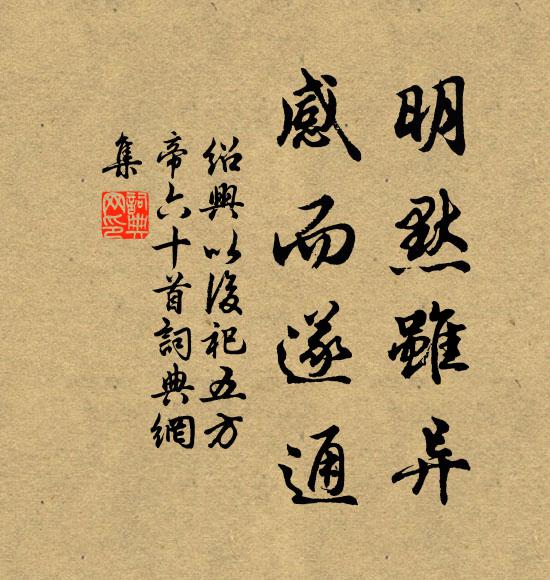 明默雖异
感而遂通
紹興以後祀五方
帝六十首詞典網
集
詞典
网印